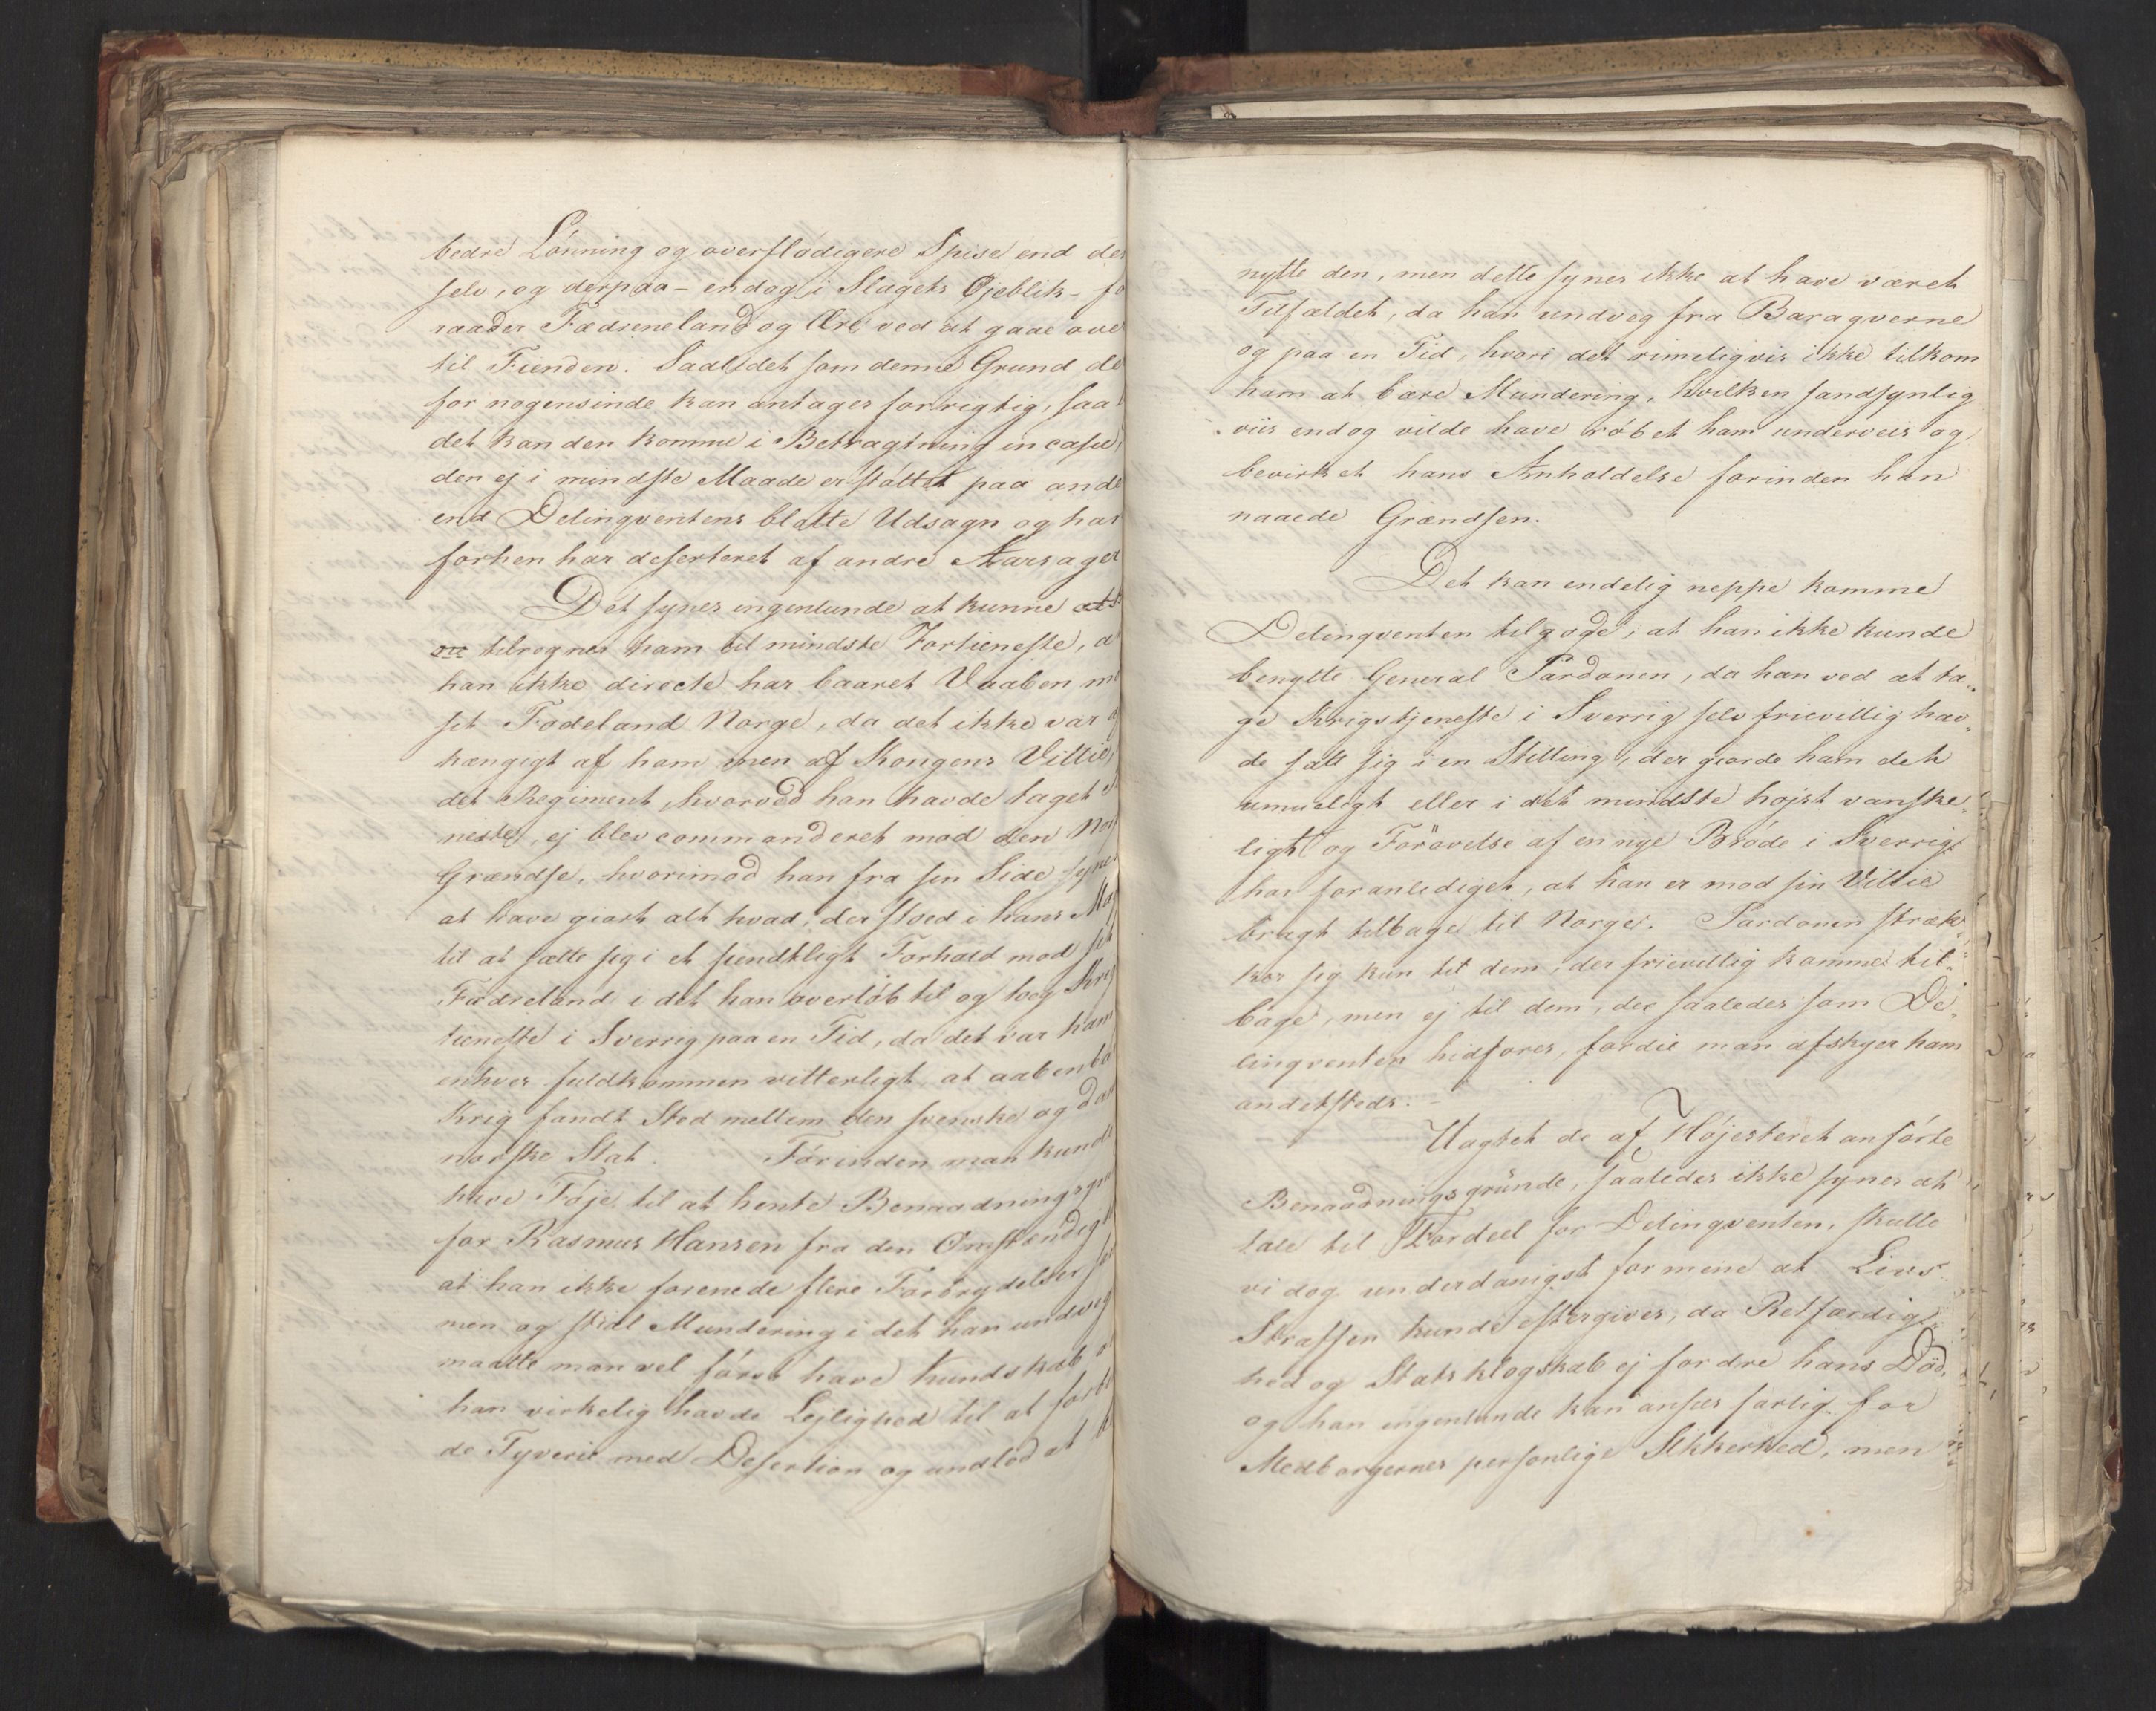 bedre Lönning og overflödigere Spise end de
selv, og derpaa - endog i Slagets Øjeblik - fo
raader Fædreneland og Ære ved at gaae ove
til Fienden. Saalidet som denne Grund de
for nogensinde kan antages for rigtig, saa
det kan den komme i Betragtning in casu,
den ej i mindste Maade er støttet paa ande
end Delinqventens blotte Udsagn og han
forhen har deserteret af andre Aarsager
Det synes ingenlunde at kunne
tilregnes ham til mindste Fortieneste, a
han ikke directe har baaret Vaaben mo
sit Fødeland Norge, da det ikke var a
hængigt af ham men af Kongens Villie,
det Regiment, hvorved han havde taget
neste, ej blev commanderet mod den Nor
Grændse, hvorimod han fra sin Side syne
at have giort alt hvad, der stoed i hans Mag
til at sætte sig i et fiendtligt Forhold mod sit
Fædreland i det han overlöb til og tog Krig
tieneste i Sverrig paa en Tid, da det var ham
enhver fuldkommen vitterligt, at aabenba
Krig fandt Sted mellem den svenske og dan
norske Stat. Förinden man kunde
have Föje til at hente Benaadningsgru
for Rasmus Hansen fra den Omstændig
at han ikke forenede flere Forbrydelser
men og stial Mundering i det han undveg
maatte man vel først have Kundskab o
han virkelig havde Lejlighed til at forbi
de Tyverie med Desertion og undlod at
nytte den, men dette synes ikke at have været
Tilfældet, da han undveg fra Baraqverne
og paa en Tid, hvori det rimeligvis ikke tilkom
ham at bære Mundering, hvilken sandsynlig
viis endog vilde have röbet ham underveis og
bevirket hans Anholdelse forinden han
naaede Grændsen.
Det kan endelig neppe komme
Delinqventen tilgode, at han ikke kunde
benytte General Pardonen, da han ved at ta„
ge Krigstjeneste i Sverrig selv frievillig hav„
de satt sig i en Stilling, der giorde ham det
umueligt eller i det mindste højst vanske„
ligt og Förövelse af en nye Bröde i Sverrig
har foranlediget, at han er mod sin Villie
bragt tilbage til Norge. Pardonen stræk„
ker sig kun til dem, der frievillig komme til„
bage, men ej til dem, der saaledes som De„
linqventen hidføres, fordie man afskyer ham
andetsteds. -
Uagtet de af Höjesteret anförte
Benaadningsgründe, saaledes ikke synes at
tale til Fordeel for Delinqventen, skulle
vi dog underdanigst formene at Livs
Straffen kunde eftergives, da Retfærdig„
hed og Statsklogskab ej fordre hans Död,
og han ingenlunde kan ansees farlig for
Medborgernes personlige Sikkerhed, men